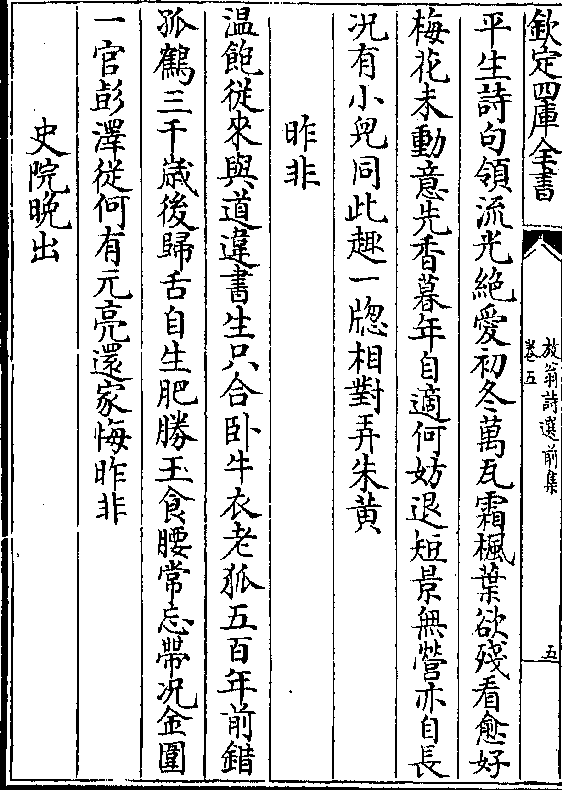 欽定四庫全書
放翁詩選前集
卷五
五
平生詩句領流光絶愛初冬萬瓦霜楓葉欲殘看愈好
梅花未動意先香暮年自適何妨退短景無營亦自長
况有小兒同此趣一牕相對弄朱黄
昨非
温飽從來與道違書生只合卧牛衣老狐五百年前錯
孤鶴三千歳後歸舌自生肥勝玉食腰常忘帶况金圍
一官彭澤從何有元亮還家悔昨非
史院晚出